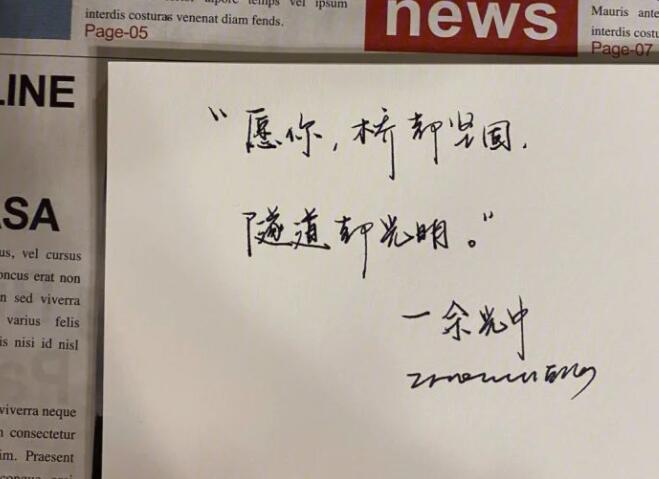 interdis costuras venenat diam fends.
Page-05
news
Mauris ante
interdis costu
Page-07
LINE
ASA
us, vel cursus
oncus erat non
n sed viverra
varius felis
is nisi id nisl
viverra neque
n consectetur
im. Praesent
“愿你，桥都坚固，
隧道都光明。”
一余光中